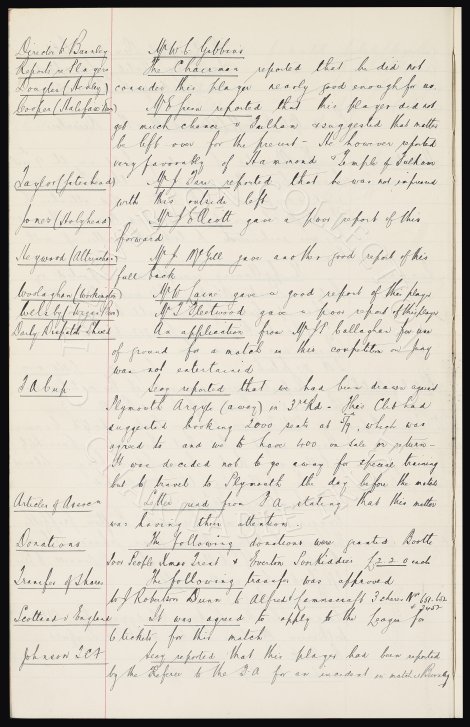 Director to Burnley Mr W. C. Gibbins
Reports re Players The Chairman reported that he did not
Douglas consider this player nearly good enough for us.
Cooper (Halifax Town) Mr E. Green reported that this player did not
get much chance v Fulham & suggested that matter
be left over for the present – He however reported
very favourably of Hammond & Temple of Fulham
Taylor (Gateshead) Mr J. reported that he was not impressed
with this outside left
Jones (Holyhead) Mr J Ellicott gave a poor report of this
forward
Heywood (Altrincham) Mr J McGill gave another good report of this
full back
Woolaghan (Workington) Mr W Laird gave a good report of this player
Welsby (Wigan Boro) Mr T. Fleetwood gave a poor report of this player
Daily Dispatch Shield An application from Mr J P. Callaghan for use
of ground for a match in this competition
was not entertained
F A Cup Secy reported that we had been drawn against
Plymouth Argyle (away) in 3rd Rd – Home Club had
suggested booking 2000 seats at 5/9, which was
agreed to and we to have 400 on sale or return –
It was decided not to go away for special training
but to travel to Plymouth the day before the match
Articles of Assocn Letter read from F A stating that this matter
was having their attention.
Donations The following donations were granted Bootle
Poor People Xmas Treat & Everton Son Kiddies £2.2.0 each
Transfer of Shares The following transfer was approved
W. J Robertson Dunn to Alfred 3 shares Nos
Scotland v England It was agreed to apply to the League for
6 tickets for this match
Johnson T.C.F Secy reported that this player had been reported
by the Referee to the F A for an incident in match v Burnley